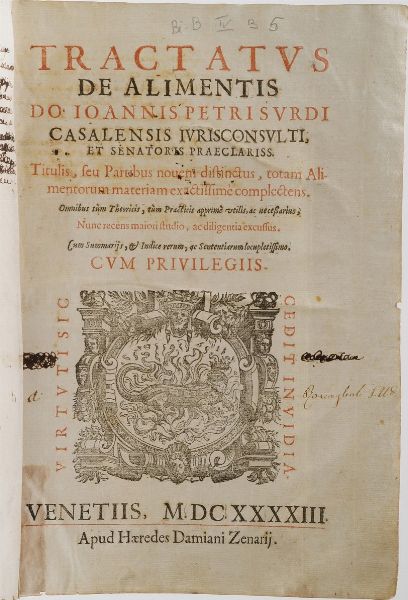 Bi. B IV B 5
TRACTATVS
DE ALIMENTIS
DO. IOANNIS PETRI SVRDI
CASALENSIS IVRISCONSVLTI,
ET SENATORIS PRAECLARISS.
Titulis, seu Partibus nouem distinctus, totam Ali-
mentorum materiam exactissimè complectens.
Omnibus tùm Theoricis, tùm Practicis apprimè vtilis, ac necessarius;
Nunc recens maiori studio, ac diligentia excussus.
Cum Summarijs, & Indice rerum, ac Sententiarum locupletissimo.
CVM PRIVILEGIIS.
VIRTVTI SIC
CEDIT INVIDIA
VENETIIS, M.DCXXXXIII.
Apud Hæredes Damiani Zenarij.